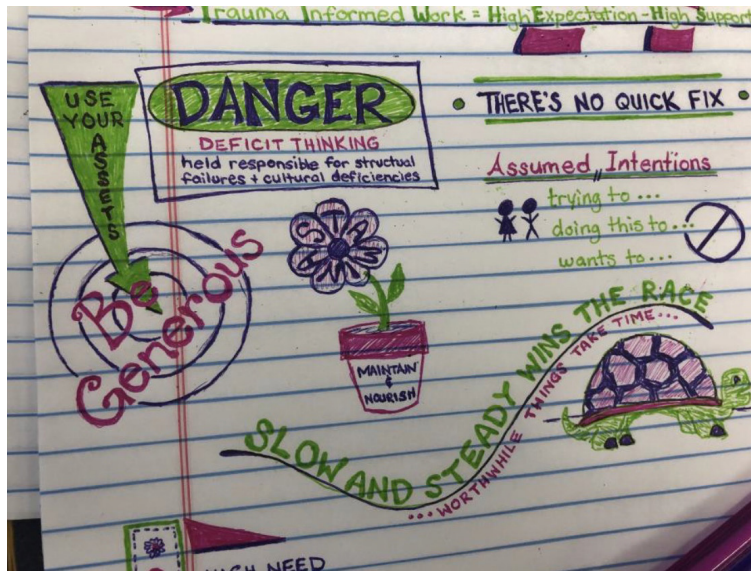 Trauma Informed Work = High Expectation - High Support
USE
YOUR
ASSETS
DANGER
DEFICIT THINKING
held responsible for structual
failures + cultural deficiencies
• THERE'S NO QUICK FIX •
Assumed Intentions
trying to ...
doing this to...
wants to...
Be
Generous
MAINTAIN
&
NOURISH
SLOW AND STEADY WINS THE RACE
...WORTHWHILE THINGS TAKE TIME...
HIGH NEED